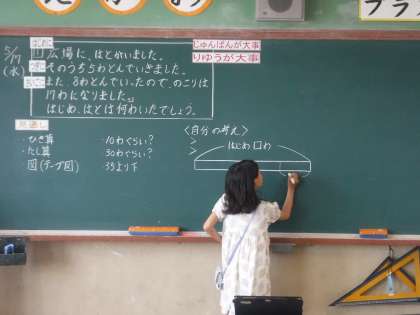 じゅんばんが大事
りゆうが大事
5/17
(水)
はじめに
問 広場に、はとがいました。
つぎに
そのうち5わとんでいきました。
さいごに
また、8わとんでいったので、のこりは
17わになりました。
はじめ、はとは何わいたでしょう。
見通し
・ひき算
・たし算
図(テープ図)
・10わぐらい?
・30わぐらい?
・35より下
〈自分の考え〉
はじめ □わ
プラ